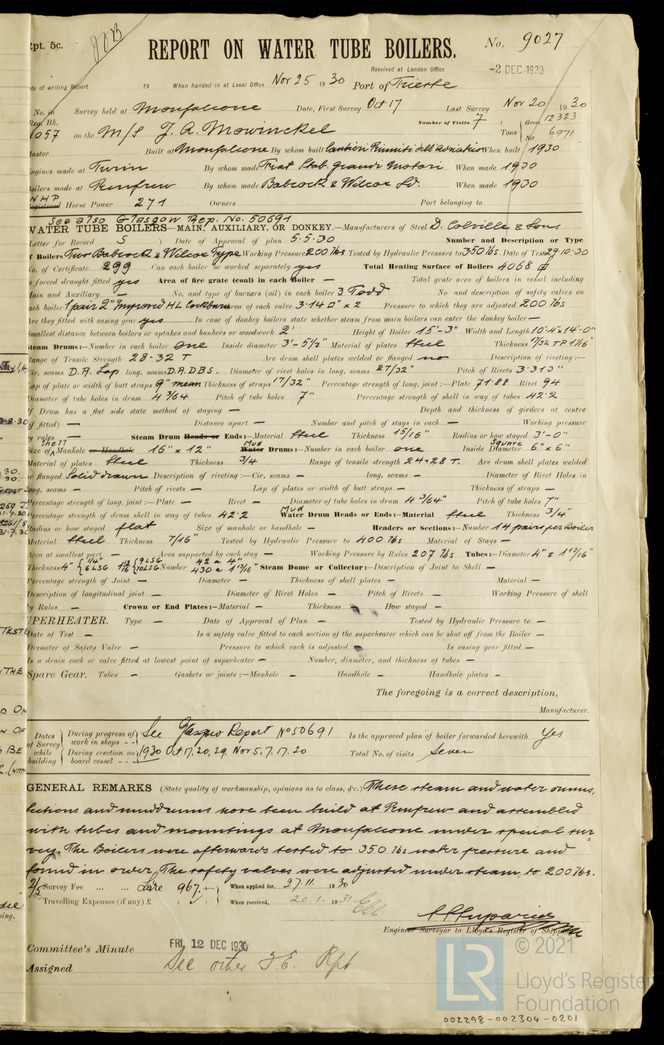 Rpt. 5c.
REPORT ON WATER TUBE BOILERS.
No. 9027
Received at London Office
-2 DEC 1930
Date of writing Report 19 When handed in at Local Office Nov 25 1930 Port of Trieste
No. in Survey held at Monfalcone Date, First Survey Oct 17 Last Survey Nov 20 1930
Reg. Bk. Number of Visits 7 Gross 12323
1057 on the M/S J. A. Mowinckel Tons Net 6971
Master Built at Monfalcone By whom built Cantieri Riuniti dell'Adriatico When built 1930
Engines made at Turin By whom made Fiat Stab. Grandi Motori When made 1930
Boilers made at Renfrew By whom made Babcock & Wilcox Ld. When made 1930
NHP Horse Power 271 Owners Port belonging to
See also Glasgow Rep. No. 50691
WATER TUBE BOILERS—MAIN, AUXILIARY, OR DONKEY.—Manufacturers of Steel D. Colville & Sons
Letter for Record S Date of Approval of plan 5.5.30 Number and Description or Type
of Boilers Two Babcock & Wilcox Type Working Pressure 200 lbs Tested by Hydraulic Pressure to 350 lbs Date of Test 29.10.30
No. of Certificate 299 Can each boiler be worked separately yes Total Heating Surface of Boilers 4068
Is forced draught fitted yes Area of fire grate (coal) in each Boiler — Total grate area of boilers in vessel including
Main and Auxiliary — No. and type of burners (oil) in each boiler 3 Todd No. and description of safety valves on
each boiler 1 pair 2" Improved H.L. Cockburn Area of each valve 3.14 □" x 2 Pressure to which they are adjusted 200 lbs
Are they fitted with easing gear yes In case of donkey boilers state whether steam from main boilers can enter the donkey boiler —
Smallest distance between boilers or uptakes and bunkers or woodwork 2' Height of Boiler 15'-3" Width and Length 10'-4" x 14'-0"
Steam Drums:—Number in each boiler one Inside diameter 3'-5 1/2" Material of plates steel Thickness
Range of Tensile Strength 28-32 T Are drum shell plates welded or flanged no Description of riveting:—
Cir. seams D.R. Lap long. seams D.R.D.B.S. Diameter of rivet holes in long. seams 27/32" Pitch of Rivets 3.313"
Lap of plate or width of butt straps 9" mean Thickness of straps 17/32" Percentage strength of long. joint:—Plate 71.88 Rivet 94
Diameter of tube holes in drum 4 3/64 Pitch of tube holes 7" Percentage strength of shell in way of tubes 42.2
If Drum has a flat side state method of staying — Depth and thickness of girders at centre
(if fitted) — Distance apart — Number and pitch of stays in each — Working pressure
by rules — Steam Drum Heads or Ends:—Material steel Thickness 15/16" Radius or how stayed 3'-0"
Size of Shell Manhole or Handhole 16" x 12" Mud Water Drums:—Number in each boiler one Inside Diameter Square 6" x 6"
Material of plates steel Thickness 3/4 Range of tensile strength 24-28 T. Are drum shell plates welded
or flanged Solid drawn Description of riveting:—Cir. seams — long. seams — Diameter of Rivet Holes in
long. seams — Pitch of rivets — Lap of plates or width of butt straps — Thickness of straps —
Percentage strength of long. joint:—Plate — Rivet — Diameter of tube holes in drum 4 3/64" Pitch of tube holes 7"
Percentage strength of drum shell in way of tubes 42.2 Mud Water Drum Heads or Ends:—Material steel Thickness 3/4"
Radius or how stayed flat Size of manhole or handhole — Headers or Sections:—Number 14 pairs per Boiler
Material steel Thickness 7/16" Tested by Hydraulic Pressure to 400 lbs Material of Stays —
Area at smallest part — Area supported by each stay — Working Pressure by Rules 207 lbs Tubes:—Diameter 4" & 1 13/16"
Thickness Number 42 x 4" 430 x 1 13/16" Steam Dome or Collector:—Description of Joint to Shell —
Percentage strength of Joint — Diameter — Thickness of shell plates — Material —
Description of longitudinal joint — Diameter of Rivet Holes — Pitch of Rivets — Working Pressure of shell
by Rules — Crown or End Plates:—Material — Thickness — How stayed —
SUPERHEATER. Type — Date of Approval of Plan — Tested by Hydraulic Pressure to —
Date of Test — Is a safety valve fitted to each section of the superheater which can be shut off from the Boiler —
Diameter of Safety Valve — Pressure to which each is adjusted — Is easing gear fitted —
Is a drain cock or valve fitted at lowest point of superheater — Number, diameter, and thickness of tubes —
Spare Gear. Tubes — Gaskets or joints:—Manhole — Handhole — Handhole plates —
The foregoing is a correct description,
Manufacturer.
Dates of Survey while building
During progress of work in shops - - See Glasgow Report No 50691 Is the approved plan of boiler forwarded herewith Yes
During erection on board vessel - - - 1930 Oct 17, 20, 29, Nov 5, 7, 17, 20 Total No. of visits Seven
GENERAL REMARKS (State quality of workmanship, opinions as to class, &c.) These steam and water drums,
sections and muddrums have been build at Renfrew and assembled
with tubes and mountings at Monfalcone under special sur-
vey. The Boilers were afterwards tested to 350 lbs water pressure and
found in order. The safety valves were adjusted under steam to 200 lbs.
2/5 Survey Fee ... ... Lire 967.- When applied for, 27.11.1930
Travelling Expenses (if any) £ When received, 20.1.1931
Engineer Surveyor to Lloyd's Register of Shipping
Committee's Minute FRI, 12 DEC 1930
Assigned See other F.E. Rpt
LR
© 2021
Lloyd's Register
Foundation
002298-002304-0201